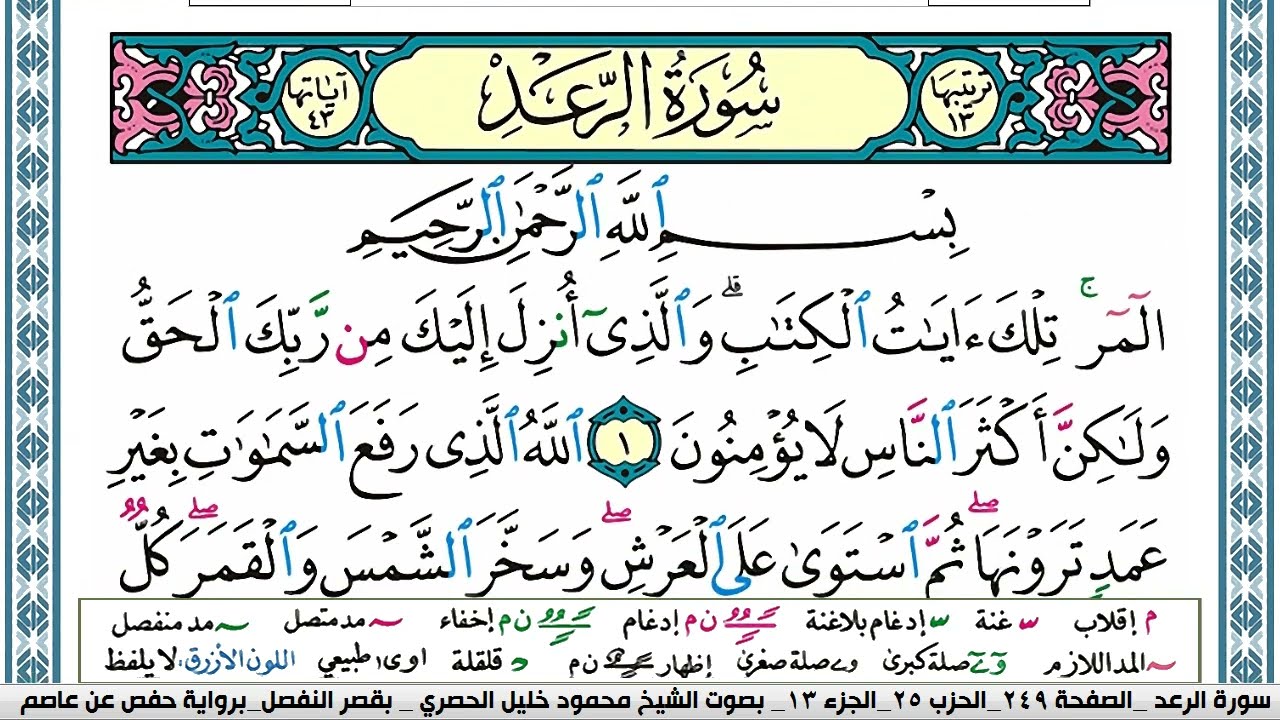 ترتيبها ١٣
سُورَةُ الرَّعْدِ
آياتها ٤٣
بِسْمِ ٱللَّهِ ٱلرَّحْمَٰنِ ٱلرَّحِيمِ
الٓمٓر ۚ تِلْكَ ءَايَٰتُ ٱلْكِتَٰبِ ۗ وَٱلَّذِىٓ أُنزِلَ إِلَيْكَ مِن رَّبِّكَ ٱلْحَقُّ
وَلَٰكِنَّ أَكْثَرَ ٱلنَّاسِ لَا يُؤْمِنُونَ ١ ٱللَّهُ ٱلَّذِى رَفَعَ ٱلسَّمَٰوَٰتِ بِغَيْرِ
عَمَدٍ تَرَوْنَهَا ۖ ثُمَّ ٱسْتَوَىٰ عَلَى ٱلْعَرْشِ ۖ وَسَخَّرَ ٱلشَّمْسَ وَٱلْقَمَرَ ۖ كُلٌّ
م إقلاب غنة إدغام بلاغنة ن م إدغام ن م إخفاء مد متصل مد منفصل
المد اللازم صلة كبرى صلة صغرى إظهار ن م قلقلة اوى طبيعي اللون الأزرق: لا يلفظ
سورة الرعد _الصفحة ٢٤٩_الحزب ٢٥_الجزء ١٣_ بصوت الشيخ محمود خليل الحصري _ بقصر النفصل_برواية حفص عن عاصم